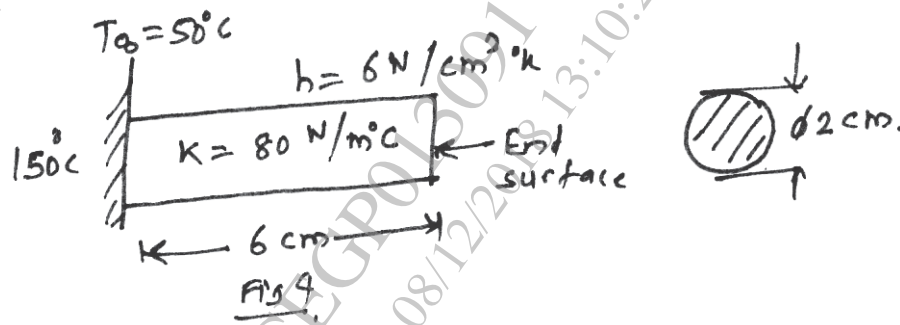 T∞ = 50°C
h = 6 W/cm² °k
150°C
K = 80 W/m°C
End
surface
ϕ2 cm.
6 cm
Fig 9
CEGP013091
08/12/2018 13:10:2